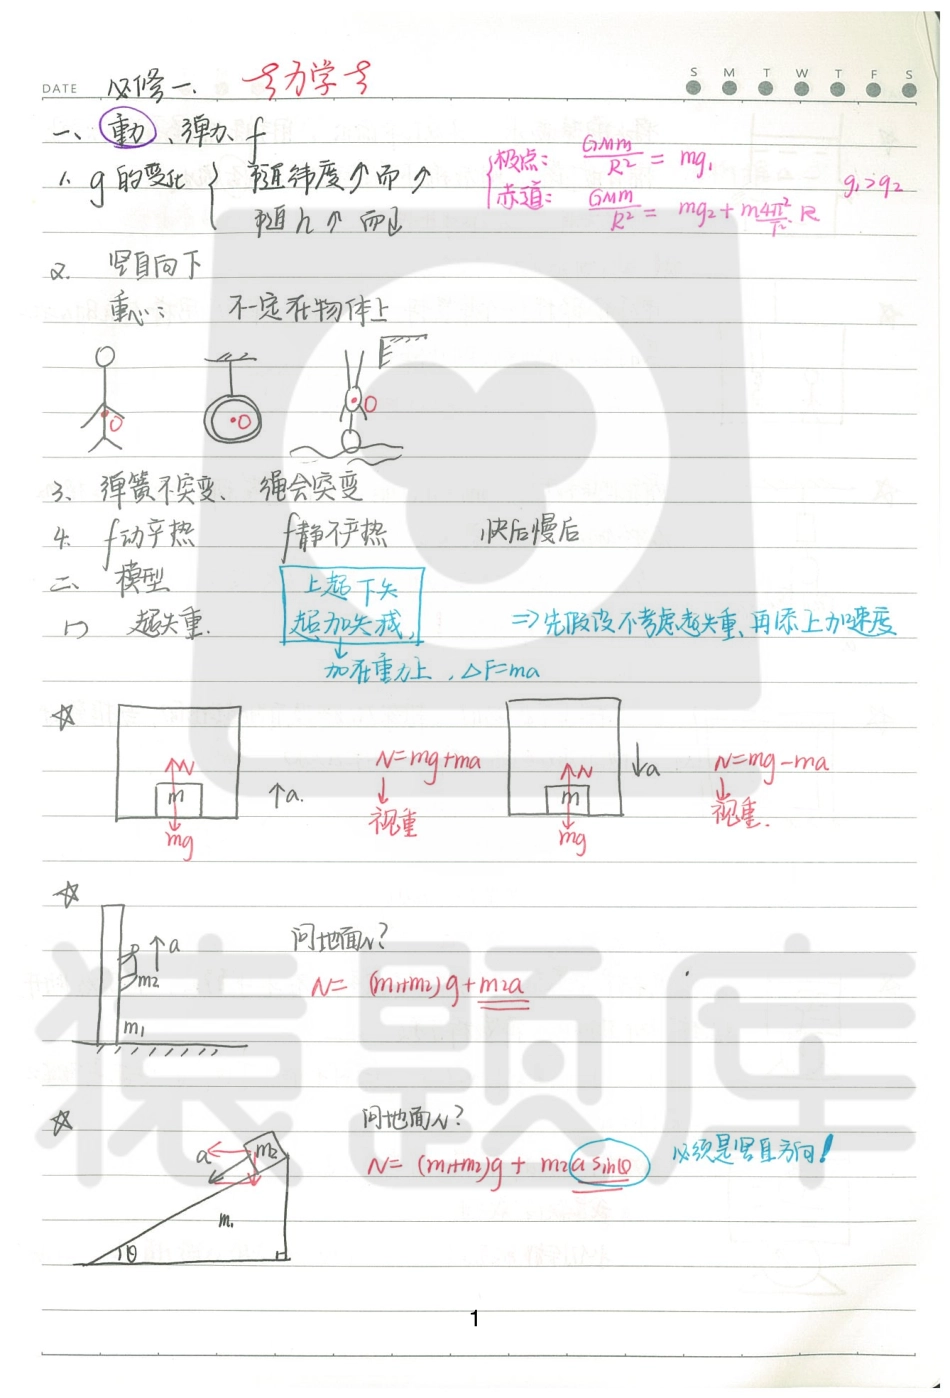 DATE 必修一. 力学
S M T W T F S
一、重力、弹力、f
1. g的变化 { 随纬度↑而↑
随h↑而↓
{ 极点: GMm/R² = mg₁
赤道: GMm/R² = mg₂+m4π²/T²·R
g₁>g₂
2. 竖直向下
重心: 不一定在物体上
O
O
O
3、弹簧不突变、绳会突变
4. f动产热 f静不产热 先后慢后
二、模型
1) 超失重.
上超下失
超加失减,
↓
加在重力上,ΔF=ma
⇒先假设不考虑超失重、再添上加速度
☆ N m mg ↑a. N=mg+ma
↓
视重
N m mg ↓a N=mg-ma
↓
视重.
☆ ↑a m₂ m₁
问地面N?
N= (m₁+m₂)g+m₂a
☆ a m₂ m₁ θ
问地面N?
N= (m₁+m₂)g + m₂a sinθ 必须是竖直方向!
猿题库
1